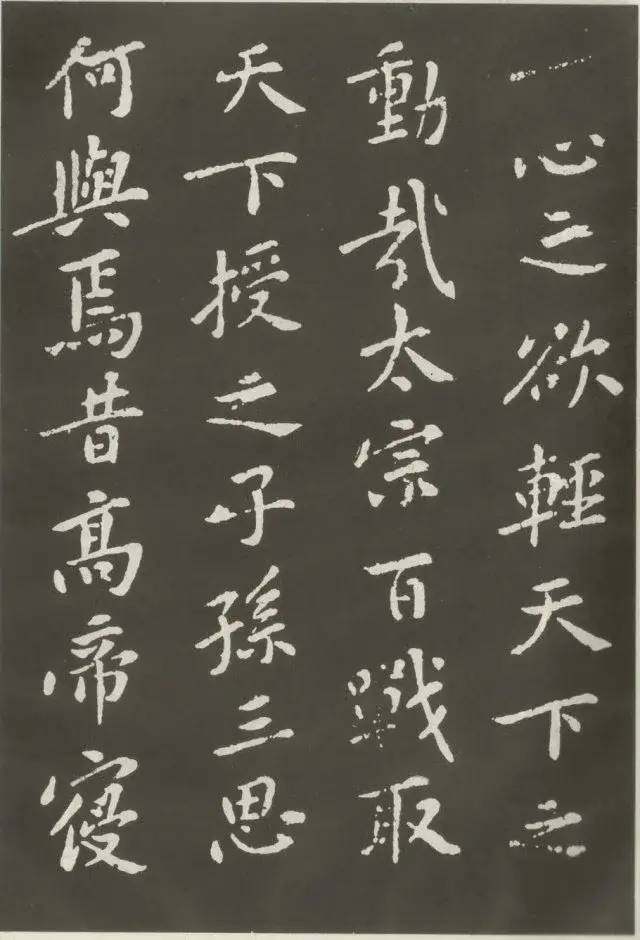 一心之欲輕天下之
動哉太宗百戰取
天下授之子孫三思
何與焉昔高帝寝